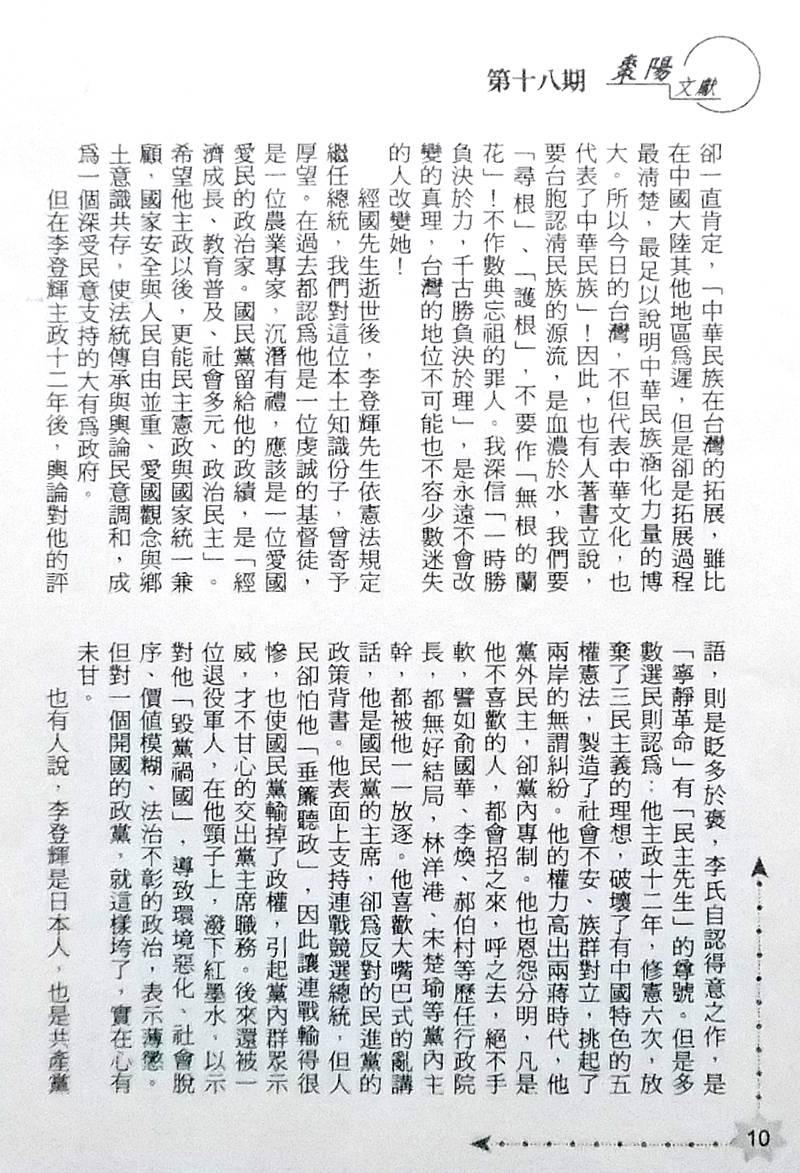 第十八期
棗陽
文獻
卻一直肯定，「中華民族在台灣的拓展，雖比
在中國大陸其他地區為遲，但是卻是拓展過程
最清楚，最足以說明中華民族涵化力量的博
大。所以今日的台灣，不但代表中華文化，也
代表了中華民族」！因此，也有人著書立說，
要台胞認清民族的源流，是血濃於水，我們要
「尋根」、「護根」，不要作「無根的蘭
花」！不作數典忘祖的罪人。我深信「一時勝
負決於力，千古勝負決於理」，是永遠不會改
變的真理，台灣的地位不可能也不容少數迷失
的人改變她！
經國先生逝世後，李登輝先生依憲法規定
繼任總統，我們對這位本土知識份子，曾寄予
厚望。在過去都認為他是一位虔誠的基督徒，
是一位農業專家，沉潛有禮，應該是一位愛國
愛民的政治家。國民黨留給他的政績，是「經
濟成長、教育普及、社會多元、政治民主」。
希望他主政以後，更能民主憲政與國家統一兼
顧，國家安全與人民自由並重、愛國觀念與鄉
土意識共存，使法統傳承與輿論民意調和，成
為一個深受民意支持的大有為政府。
但在李登輝主政十二年後，輿論對他的評
語，則是貶多於褒，李氏自認得意之作，是
「寧靜革命」有「民主先生」的尊號。但是多
數選民則認為：他主政十二年，修憲六次，放
棄了三民主義的理想，破壞了有中國特色的五
權憲法，製造了社會不安、族群對立，挑起了
兩岸的無謂糾紛。他的權力高出兩蔣時代，他
黨外民主，卻黨內專制。他也恩怨分明，凡是
他不喜歡的人，都會招之來，呼之去，絕不手
軟，譬如俞國華、李煥、郝伯村等歷任行政院
長，都無好結局，林洋港、宋楚瑜等黨內主
幹，都被他一一放逐。他喜歡大嘴巴式的亂講
話，他是國民黨的主席，卻為反對的民進黨的
政策背書。他表面上支持連戰競選總統，但人
民卻怕他「垂簾聽政」，因此讓連戰輸得很
慘，也使國民黨輸掉了政權，引起黨內群眾示
威，才不甘心的交出黨主席職務。後來還被一
位退役軍人，在他頸子上，潑下紅墨水，以示
對他「毀黨禍國」，導致環境惡化、社會脫
序、價值模糊、法治不彰的政治，表示薄懲。
但對一個開國的政黨，就這樣垮了，實在心有
未甘。
也有人說，李登輝是日本人，也是共產黨
10